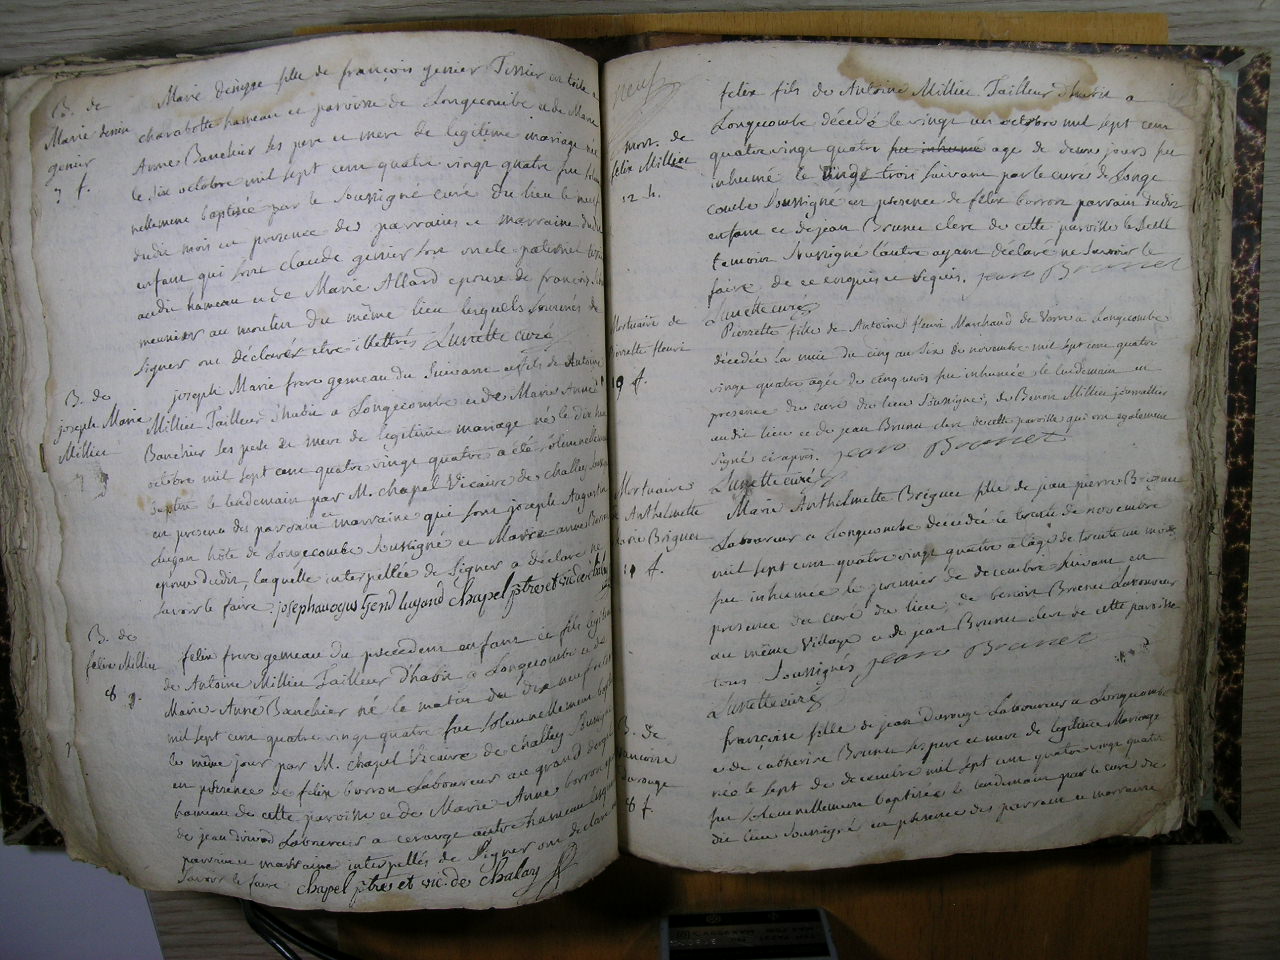 B. de
Marie denise
genier
7 f.
Marie denise fille de françois genier Tissier en toile a
charabotte hameau et paroisse de Longecombe et de Marie
Anne Banchier ses pere et mere de legitime mariage nee
le six octobre mil sept cent quatre vingt quatre fut solem
nellement baptisée par le soussigné curé du lieu le neuf
dudit mois en presence des parrains et marraine dudit
enfant qui sont claude genier son oncle paternel
audit hameau et de Marie Allard epouse de françois
meunier au moulin du même lieu lesquels sommés de
signer ont déclarés etre illettrés Lunette curé
B. de
joseph Marie
Millieu
joseph Marie frere gemeau du suivant et fils de Antoine
Millieu Tailleur d'habit a Longecombe et de Marie Anne
Banchier ses pere et mere de legitime mariage né le dix huit
octobre mil sept cent quatre vingt quatre a été solemnellement
baptisé le lendemain par M. chapel Vicaire de challey
en presence des parrain et marraine qui sont joseph Augustin
Lugan hôte de Longecombe soussigné et Marie-anne
epouse dudit, laquelle interpellée de signer a déclaré ne
savoir le faire. chapel ptre et vic. de
B. de
felix Millieu
8 g.
felix frere gemeau du precedent enfant et fils legitime
de Antoine Millieu Tailleur D'habit a Longecombe et de
Marie-Anne Banchier né le matin du dix neuf
mil sept cent quatre vingt quatre fut solemnellement baptisé
le même jour par M. chapel Vicaire de challey
en presence de felix borron Laboureur au grand
hameau de cette paroisse et de Marie Anne borron
de jean Laboureur a corange autre hameau
parrain et marraine interpellés de signer ont declaré
savoir le faire chapel ptre et vic. de chaley
neuf
mort. de
felix Millieu
12 h.
felix fils de Antoine Millieu Tailleur d'habit a
Longecombe décedé le vingt un octobre mil sept cent
quatre vingt quatre fut inhumé age de deux jours fut
inhumé le vingt trois suivant par le curé de Longe
combe soussigné en presence de felix borron parrain dudit
enfant et de jean Brunet clerc de cette paroisse le seul
temoin soussigné l'autre ayant déclaré ne savoir le
faire de ce enquis et requis. jean Brunet
Lunette curé
Mortuaire de
Pierrette fleuri
19 f.
Pierrette fille de Antoine fleuri Marchand de Verre a Longecombe
décedée la nuit du cinq au six de novembre mil sept cent quatre
vingt quatre agée de cinq mois fut inhumée le lendemain en
presence du curé du lieu soussigné, de Benoit Millieu journallier
audit lieu et de jean Brunet clerc de cette paroisse qui ont egalement
signé ci après. jean Brunet
Lunette curé
Mortuaire
Anthelmette
Marie Briguet
19 f.
Marie Anthelmette Briguet fille de jean pierre Briguet
Laboureur a Longecombe décedée le trente de novembre
mil sept cent quatre vingt quatre a l'age de trente un mois
fut inhumée le premier de decembre suivant en
presence du curé du lieu, de benoit Brunet Laboureur
au même village et de jean Brunet clerc de cette paroisse
tous soussignés jean Brunet
Lunette curé
B. de
francoise
durouge
8 f.
françoise fille de jean durouge Laboureur a Longecombe
et de catherine Brunet ses pere et mere de legitime Mariage
née le sept de decembre mil sept cent quatre vingt quatre
fut solemnellement baptisée le lendemain par le curé du
dit lieu soussigné en presence des parrain et marraine